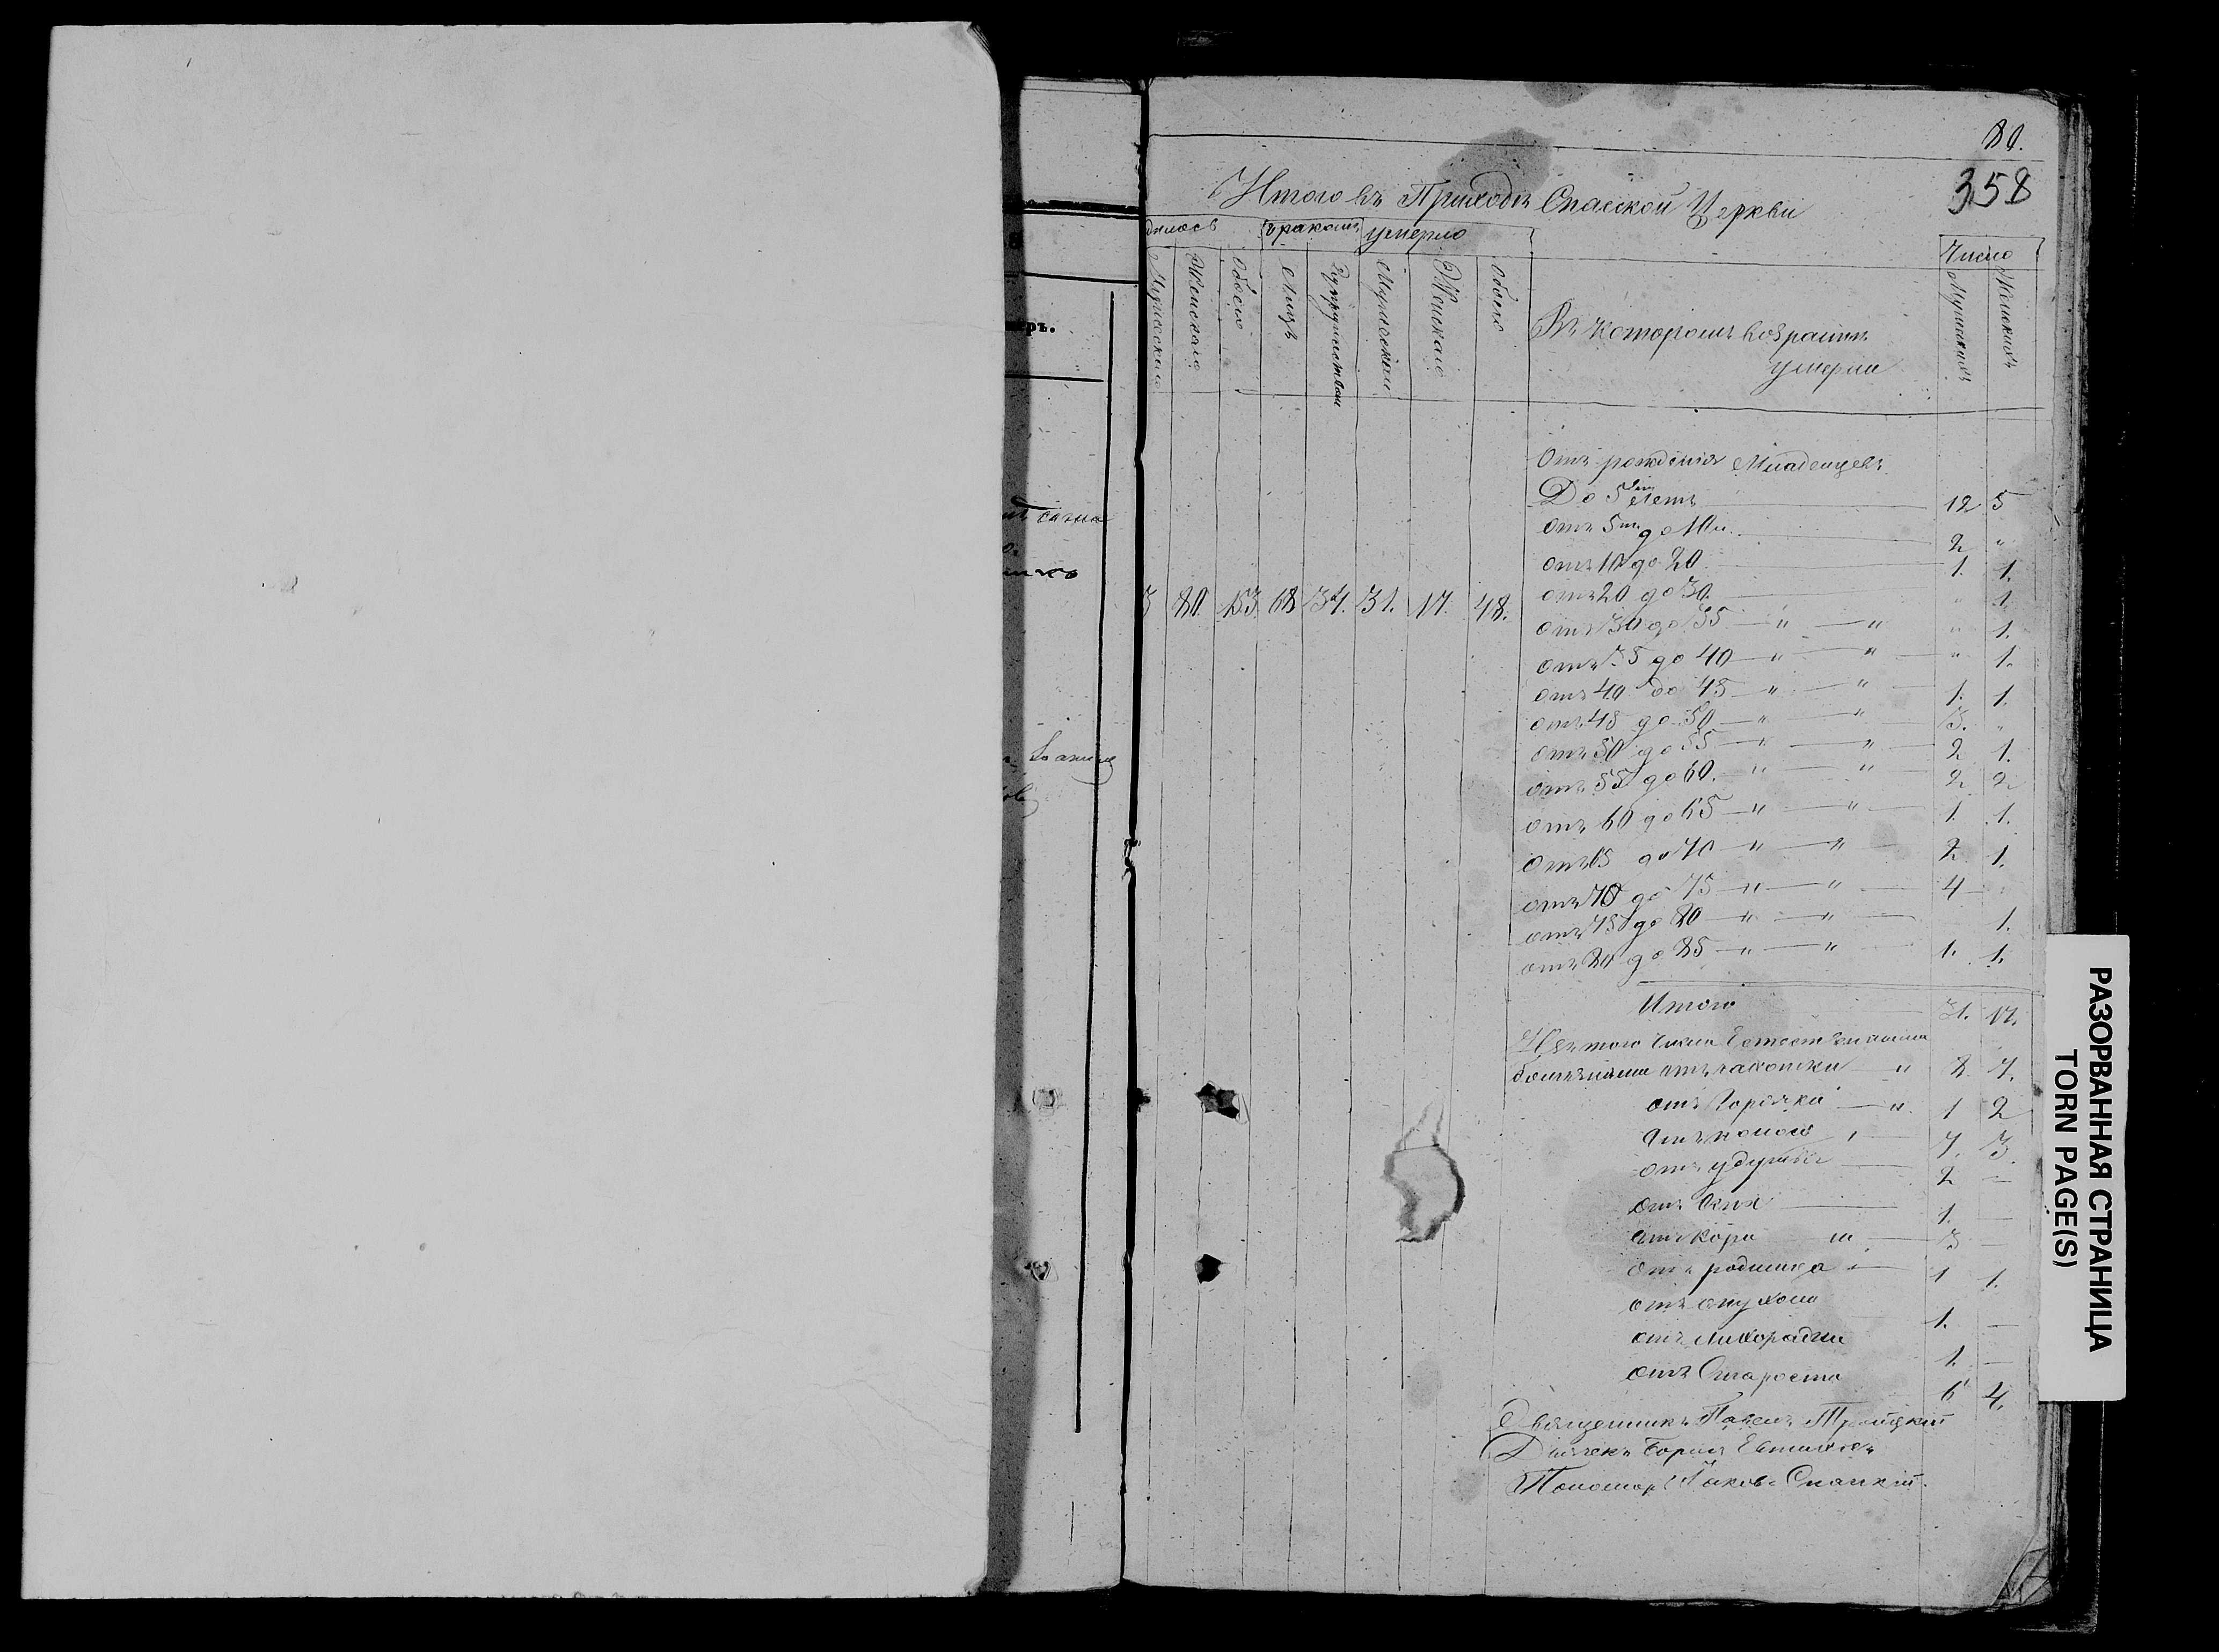 80.
358
Итого въ Приходѣ Спасской Церкви
дилось
бракомъ
умерло
Число
Мужескаго
Женскаго
обоего
Лицъ
Супружествъ
Мужескаго
Женскаго
обоего
Въ которомъ возрастѣ
умерли
Мужескихъ
Женскихъ
Отъ рожденія Младенцевъ
До 5 лѣтъ 12 5
отъ 5 до 10 2 "
отъ 10 до 20 1. 1.
отъ 20 до 30. " 1.
3 80. 153. 68 34. 31. 17. 48.
отъ 30 до 35 — " — " " 1.
отъ 35 до 40 — " — " " 1.
отъ 40 до 45 — " — " 1. 1.
отъ 45 до 50 — " — " 3. "
отъ 50 до 55 — " — " 2 1.
отъ 55 до 60. " — " 2 2
отъ 60 до 65 — " — " 1. 1.
отъ 65 до 70 — " — " 2 1.
отъ 70 до 75 — " — " 4 —
отъ 75 до 80 — " — " 1.
отъ 80 до 85 — " — " 1. 1.
Итого 31. 17.
Изъ того числа Естественными
болѣзнями отъ чахотки — " 8. 7.
отъ Горячки — " 1 2
отъ поноса 7. 3.
отъ удушья 2 —
отъ Оспы 1. —
отъ Кори 3 —
отъ родимца 1 1.
отъ опухоли 1. —
отъ лихорадки 1. —
отъ Старости 6 4.
Священникъ Павелъ Троицкій
Дьячекъ Борисъ Евтихіевъ
Пономарь Іаковъ Спаскій.
ръ.
РАЗОРВАННАЯ СТРАНИЦА
TORN PAGE(S)